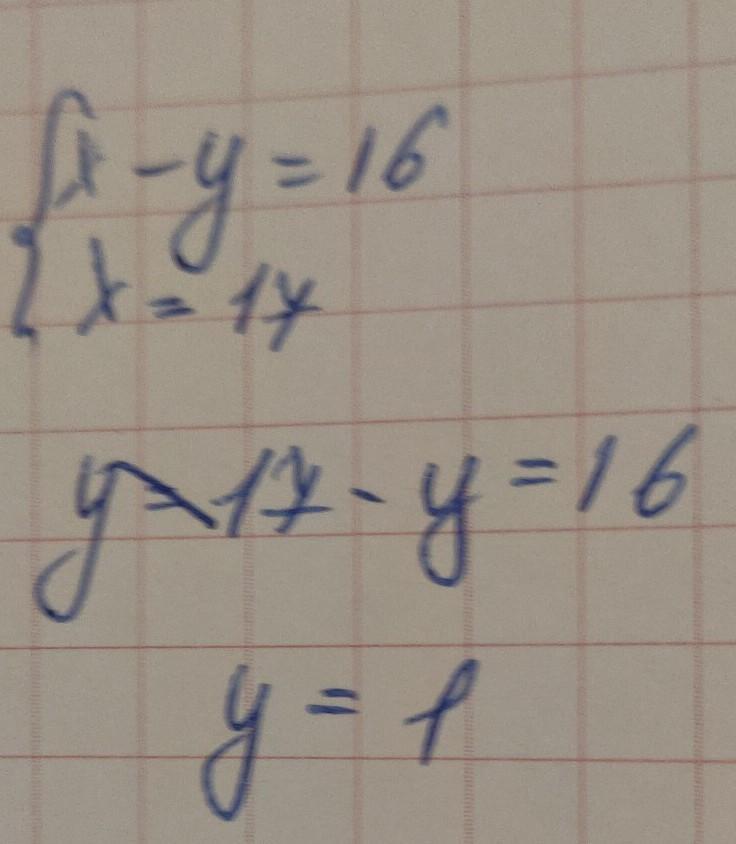 {x - y = 16
x = 17
17 - y = 16
y = 1